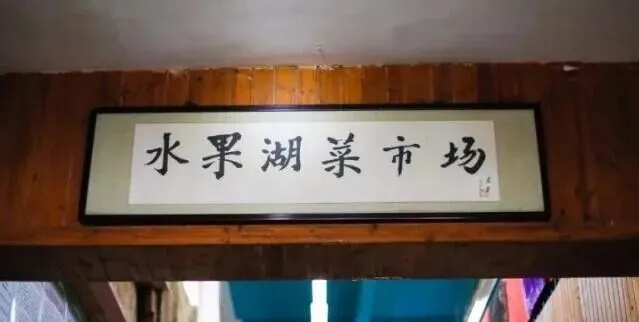 水果湖菜市场